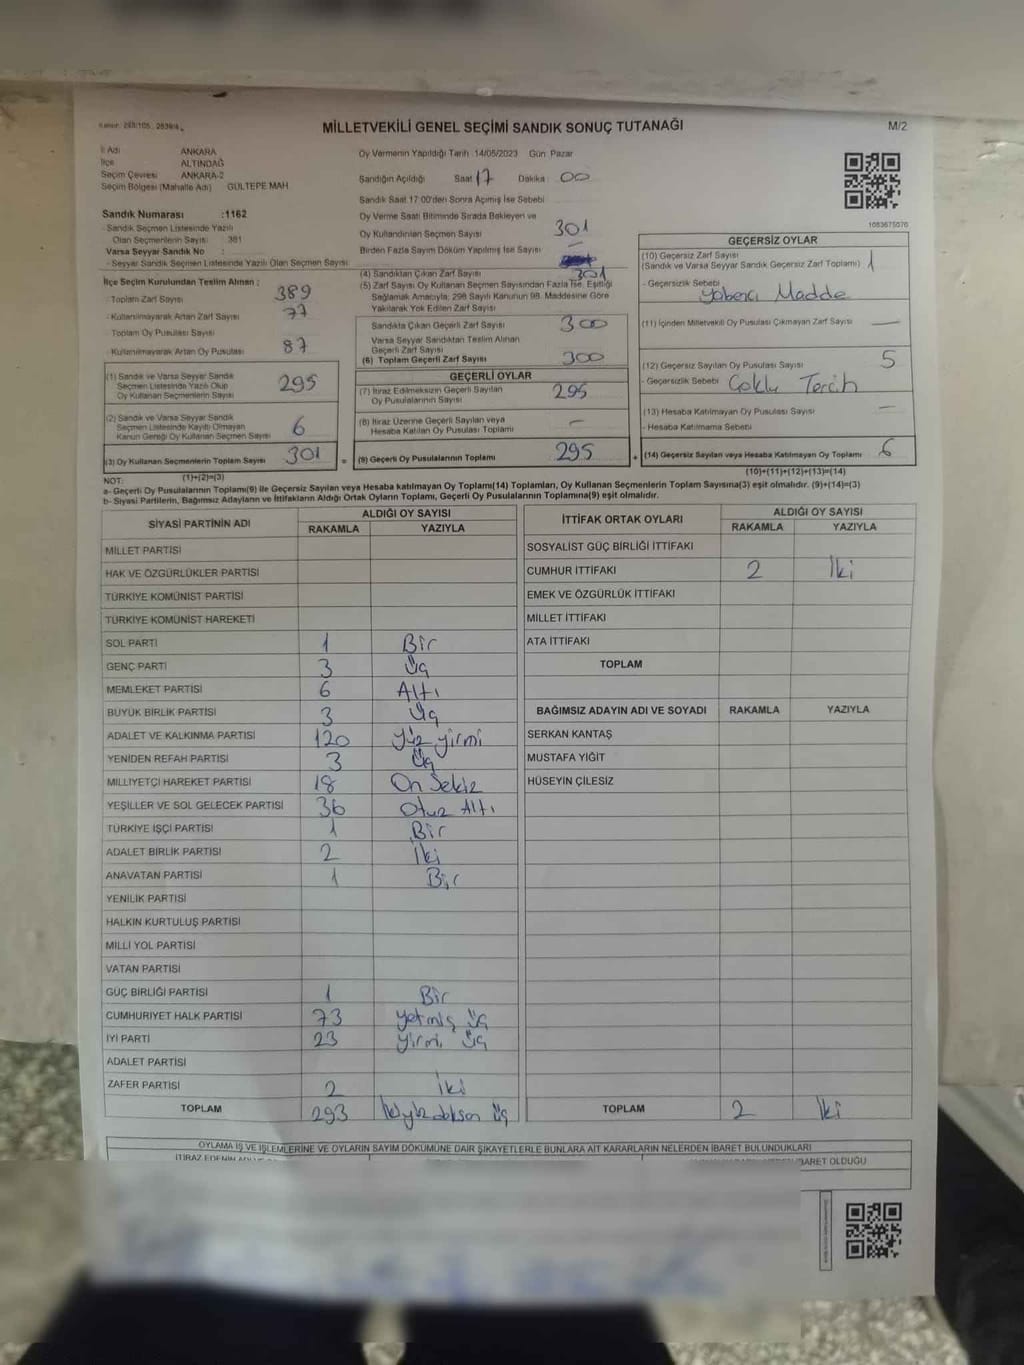 MİLLETVEKİLİ GENEL SEÇİMİ SANDIK SONUÇ TUTANAĞI
M/2
İl Adı ANKARA
İlçe ALTINDAĞ
Seçim Çevresi ANKARA-2
Seçim Bölgesi (Mahalle Adı) GÜLTEPE MAH
Sandık Numarası :1162
- Sandık Seçmen Listesinde Yazılı
Olan Seçmenlerin Sayısı : 381
Varsa Seyyar Sandık No :
- Seyyar Sandık Seçmen Listesinde Yazılı Olan Seçmen Sayısı
İlçe Seçim Kurulundan Teslim Alınan :
- Toplam Zarf Sayısı 389
- Kullanılmayarak Artan Zarf Sayısı 77
- Toplam Oy Pusulası Sayısı
- Kullanılmayarak Artan Oy Pusulası 87
(1) Sandık ve Varsa Seyyar Sandık
Seçmen Listesinde Yazılı Olup
Oy Kullanan Seçmenlerin Sayısı 295
(2) Sandık ve Varsa Seyyar Sandık
Seçmen Listesinde Kayıtlı Olmayan
Kanun Gereği Oy Kullanan Seçmen Sayısı 6
(3) Oy Kullanan Seçmenlerin Toplam Sayısı 301 =
(1)+(2)=(3)
Oy Vermenin Yapıldığı Tarih 14/05/2023 Gün Pazar
Sandığın Açıldığı Saat 17 Dakika 00
Sandık Saat 17:00'den Sonra Açımış İse Sebebi
Oy Verme Saati Bitiminde Sırada Bekleyen ve
Oy Kullandırılan Seçmen Sayısı 301
Birden Fazla Sayım Döküm Yapılmış İse Sayısı –
(4) Sandıktan Çıkan Zarf Sayısı 301
(5) Zarf Sayısı Oy Kullanan Seçmen Sayısından Fazla İse, Eşitliği
Sağlamak Amacıyla, 298 Sayılı Kanunun 98. Maddesine Göre
Yakılarak Yok Edilen Zarf Sayısı
Sandıkta Çıkan Geçerli Zarf Sayısı 300
Varsa Seyyar Sandıktan Teslim Alınan
Geçerli Zarf Sayısı
(6) Toplam Geçerli Zarf Sayısı 300
GEÇERLİ OYLAR
(7) İtiraz Edilmeksizin Geçerli Sayılan
Oy Pusulalarının Sayısı 295
(8) İtiraz Üzerine Geçerli Sayılan veya
Hesaba Katılan Oy Pusulası Toplamı –
(9) Geçerli Oy Pusulalarının Toplamı 295 +
1083675076
GEÇERSİZ OYLAR
(10) Geçersiz Zarf Sayısı
(Sandık ve Varsa Seyyar Sandık Geçersiz Zarf Toplamı) 1
- Geçersizlik Sebebi Yabancı Madde
(11) İçinden Milletvekili Oy Pusulası Çıkmayan Zarf Sayısı —
(12) Geçersiz Sayılan Oy Pusulası Sayısı 5
- Geçersizlik Sebebi Çoklu Tercih
(13) Hesaba Katılmayan Oy Pusulası Sayısı –
- Hesaba Katılmama Sebebi
(14) Geçersiz Sayılan veya Hesaba Katılmayan Oy Toplamı 6
(10)+(11)+(12)+(13)=(14)
NOT:
a- Geçerli Oy Pusulalarının Toplamı(9) ile Geçersiz Sayılan veya Hesaba katılmayan Oy Toplamı(14) Toplamları, Oy Kullanan Seçmenlerin Toplam Sayısına(3) eşit olmalıdır. (9)+(14)=(3)
b- Siyasi Partilerin, Bağımsız Adayların ve İttifakların Aldığı Ortak Oyların Toplamı, Geçerli Oy Pusulalarının Toplamına(9) eşit olmalıdır.
SİYASİ PARTİNİN ADI ALDIĞI OY SAYISI
RAKAMLA YAZIYLA
MİLLET PARTİSİ
HAK VE ÖZGÜRLÜKLER PARTİSİ
TÜRKİYE KOMÜNİST PARTİSİ
TÜRKİYE KOMÜNİST HAREKETİ
SOL PARTİ 1 Bir
GENÇ PARTİ 3 Üç
MEMLEKET PARTİSİ 6 Altı
BÜYÜK BİRLİK PARTİSİ 3 Üç
ADALET VE KALKINMA PARTİSİ 120 Yüz yirmi
YENİDEN REFAH PARTİSİ 3 Üç
MİLLİYETÇİ HAREKET PARTİSİ 18 On Sekiz
YEŞİLLER VE SOL GELECEK PARTİSİ 36 Otuz Altı
TÜRKİYE İŞÇİ PARTİSİ 1 Bir
ADALET BİRLİK PARTİSİ 2 İki
ANAVATAN PARTİSİ 1 Bir
YENİLİK PARTİSİ
HALKIN KURTULUŞ PARTİSİ
MİLLİ YOL PARTİSİ
VATAN PARTİSİ
GÜÇ BİRLİĞİ PARTİSİ 1 Bir
CUMHURİYET HALK PARTİSİ 73 yetmiş üç
İYİ PARTİ 23 yirmi üç
ADALET PARTİSİ
ZAFER PARTİSİ 2 İki
TOPLAM 293 üç
İTTİFAK ORTAK OYLARI ALDIĞI OY SAYISI
RAKAMLA YAZIYLA
SOSYALİST GÜÇ BİRLİĞİ İTTİFAKI
CUMHUR İTTİFAKI 2 İki
EMEK VE ÖZGÜRLÜK İTTİFAKI
MİLLET İTTİFAKI
ATA İTTİFAKI
TOPLAM
BAĞIMSIZ ADAYIN ADI VE SOYADI RAKAMLA YAZIYLA
SERKAN KANTAŞ
MUSTAFA YİĞİT
HÜSEYİN ÇİLESİZ
TOPLAM 2 İki
OYLAMA İŞ VE İŞLEMLERİNE VE OYLARIN SAYIM DÖKÜMÜNE DAİR ŞİKAYETLERLE BUNLARA AİT KARARLARIN NELERDEN İBARET BULUNDUKLARI
İTİRAZ EDENİN
İBARET OLDUĞU